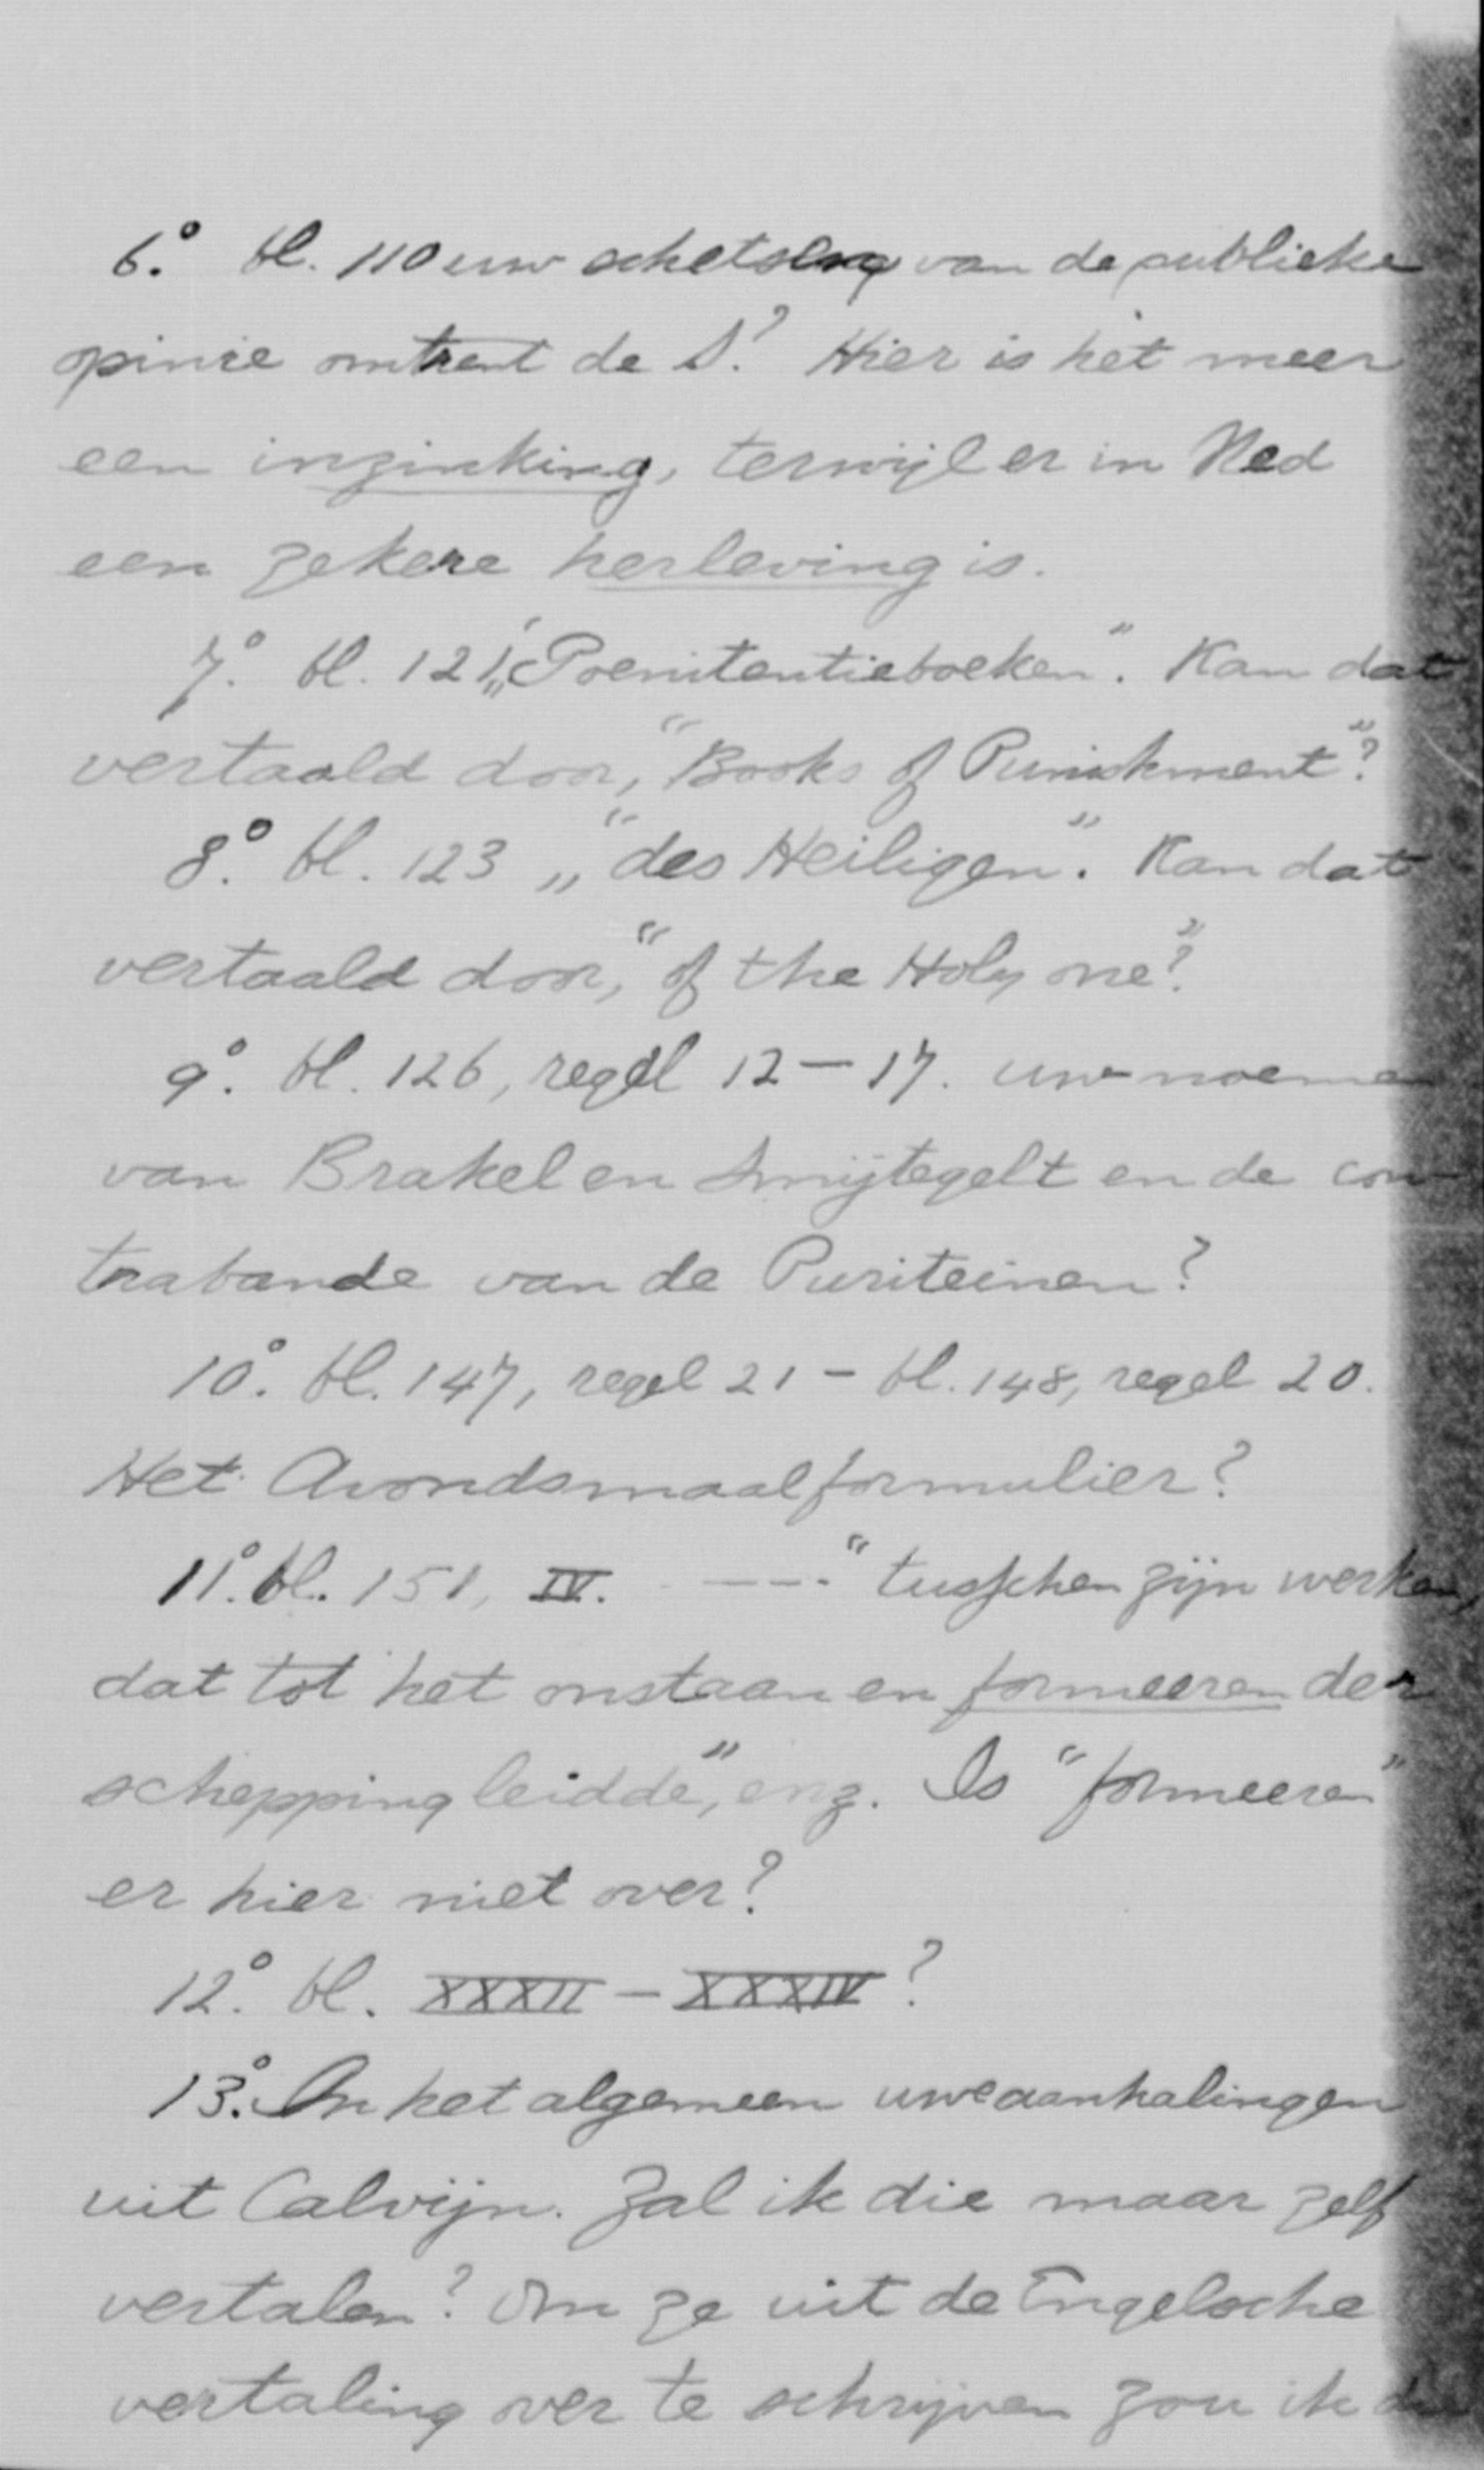 6.° bl. 110 uw schetsing van de publieke
opinie omtrent de S.? Hier is het meer
een inzinking, terwijl er in Ned
een zekere herleving is.
7.° bl. 121 „Poenitentieboeken”. Kan dat
vertaald door, “Books of Punishment”?
8.° bl. 123 „“des Heiligen”. Kan dat
vertaald door, “of the Holy one”?
9.° bl. 126, regel 12 – 17. uw noemen
van Brakel en Smijtegelt en de con
trabande van de Puriteinen?
10.° bl. 147, regel 21 – bl. 148, regel 20.
Het Avondsmaalformulier?
11.° bl. 151, IV. ---- “tusschen zijn werken,
dat tot het onstaan en formeeren der
schepping leidde”, enz. Is “formeeren”
er hier niet over?
12.° bl. XXXII – XXXIV?
13.° In het algemeen uwe aanhalingen
uit Calvijn. Zal ik die maar zelf
vertalen? Om ze uit de Engelsche
vertaling over te schrijven zou ik